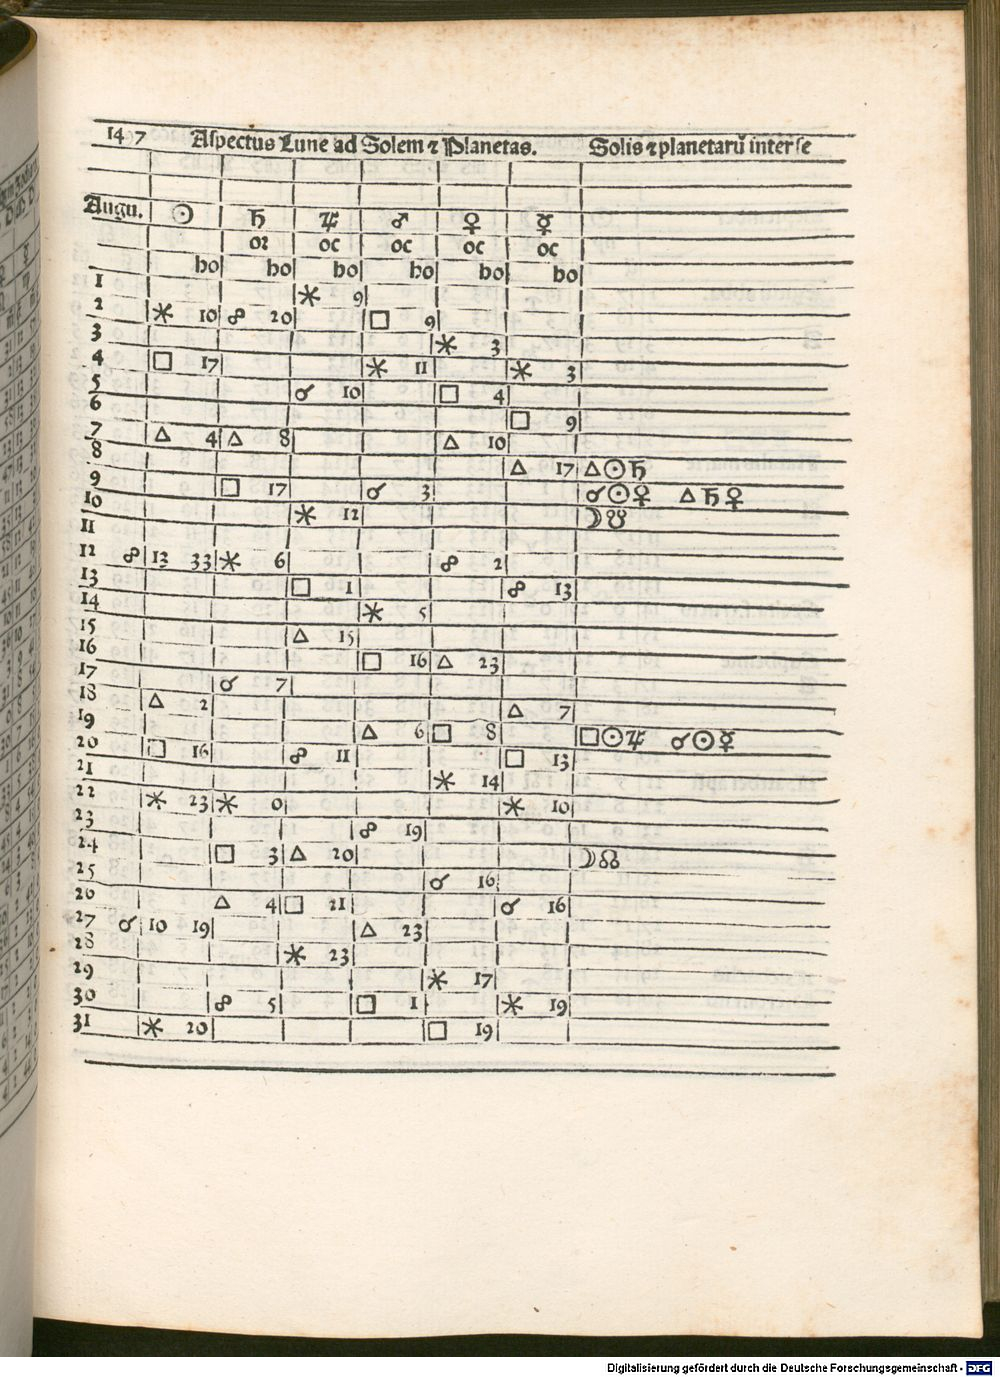 1497 Aspectus Lune ad Solem ⁊ Planetas. Solis ⁊ planetarū inter se
Augu. ☉ ♄ ♃ ♂ ♀ ☿
or oc oc oc oc
ho ho ho ho ho ho
1 ⚹ 9
2 ⚹ 10 ☍ 20 □ 9
3 ⚹ 3
4 □ 17 ⚹ 11 ⚹ 3
5 ☌ 10 □ 4
6 □ 9
7 △ 4 △ 8 △ 10
8 △ 17 △☉♄
9 □ 17 ☌ 3 ☌☉♀ △♄♀
10 ⚹ 12 ☽☋
11
12 ☍ 13 33 ⚹ 6 ☍ 2
13 □ 1 ☍ 13
14 ⚹ 5
15 △ 15
16 □ 16 △ 23
17 ☌ 7
18 △ 2 △ 7
19 △ 6 □ 8 □☉♃ ☌☉☿
20 □ 16 ☍ 11 □ 13
21 ⚹ 14
22 ⚹ 23 ⚹ 0 ⚹ 10
23 ☍ 19
24 □ 3 △ 20 ☽☊
25 ☌ 16
26 △ 4 □ 21 ☌ 16
27 ☌ 10 19 △ 23
28 ⚹ 23
29 ⚹ 17
30 ☍ 5 □ 1 ⚹ 19
31 ⚹ 20 □ 19
Digitalisierung gefördert durch die Deutsche Forschungsgemeinschaft - DFG